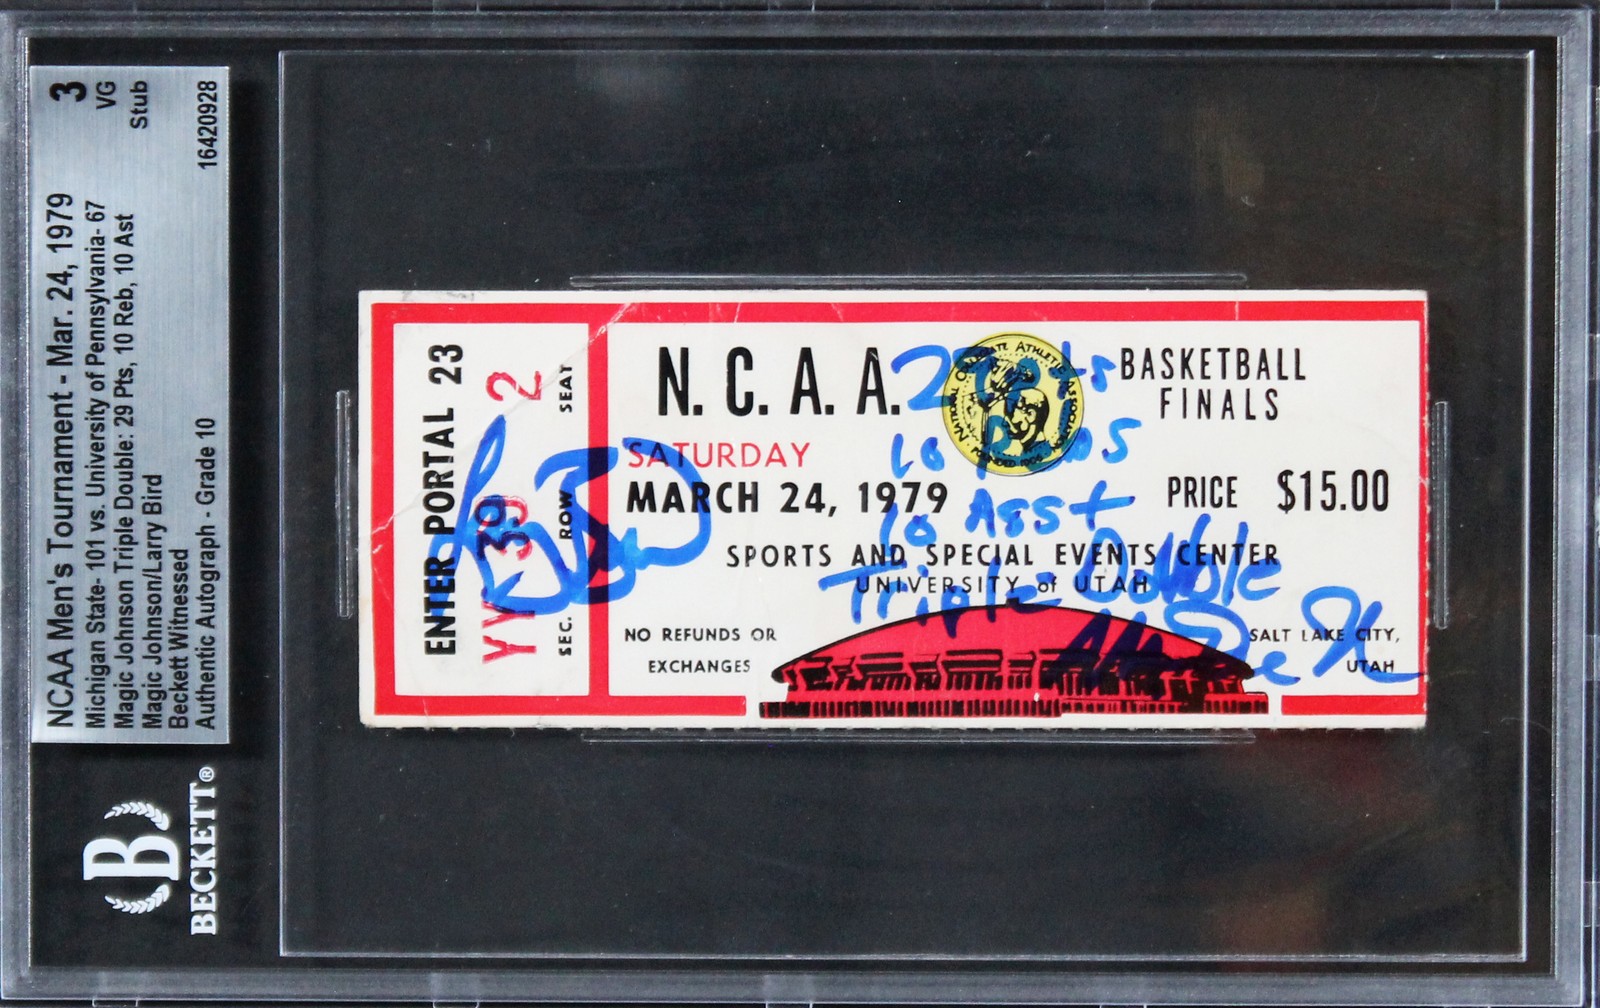 NCAA Men's Tournament - Mar. 24, 1979
Michigan State- 101 vs. University of Pennsylvania- 67
Magic Johnson Triple Double: 29 Pts, 10 Reb, 10 Ast
Magic Johnson/Larry Bird
Beckett Witnessed
Authentic Autograph - Grade 10
3
VG
Stub
16420928
B
BECKETT®
ENTER PORTAL 23
YY 39 2
SEC. ROW SEAT
N. C. A. A.
BASKETBALL
FINALS
SATURDAY
MARCH 24, 1979
PRICE $15.00
SPORTS AND SPECIAL EVENTS CENTER
UNIVERSITY of UTAH
NO REFUNDS OR
EXCHANGES
SALT LAKE CITY,
UTAH
NATIONAL COLLEGIATE ATHLETIC ASSOCIATION
FOUNDED 1906
29 Pts
10 Rebs
10 Asst
Triple-Double
Larry Bird